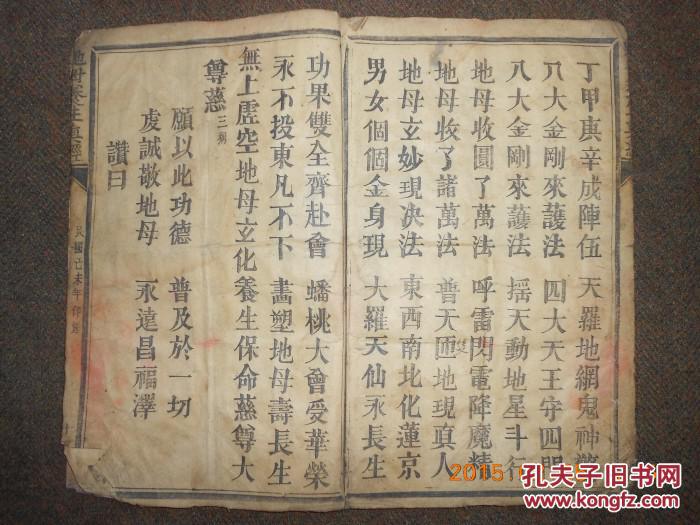 丁甲庚辛成陣伍　天羅地網鬼神驚
八大金剛來護法　四大天王守四門
八大金剛來護法　揺天動地星斗行
地母收圓了萬法　呼雷閃電降魔精
地母收了諸萬法　普天匝地現真人
地母玄妙現决法　東西南北化蓮京
男女個個金身現　大羅天仙永長生
功果雙全齊赴會　蟠桃大會受華榮
永不投東凡不下　畵塑地母壽長生
無上虛空地母玄化養生保命慈尊大
尊慈三稱
願以此功德　普及於一切
虔誠敬地母　永遠昌福澤
讚曰
地母養生真經
民國己未年印造
2015
孔夫子旧书网
www.kongfz.com